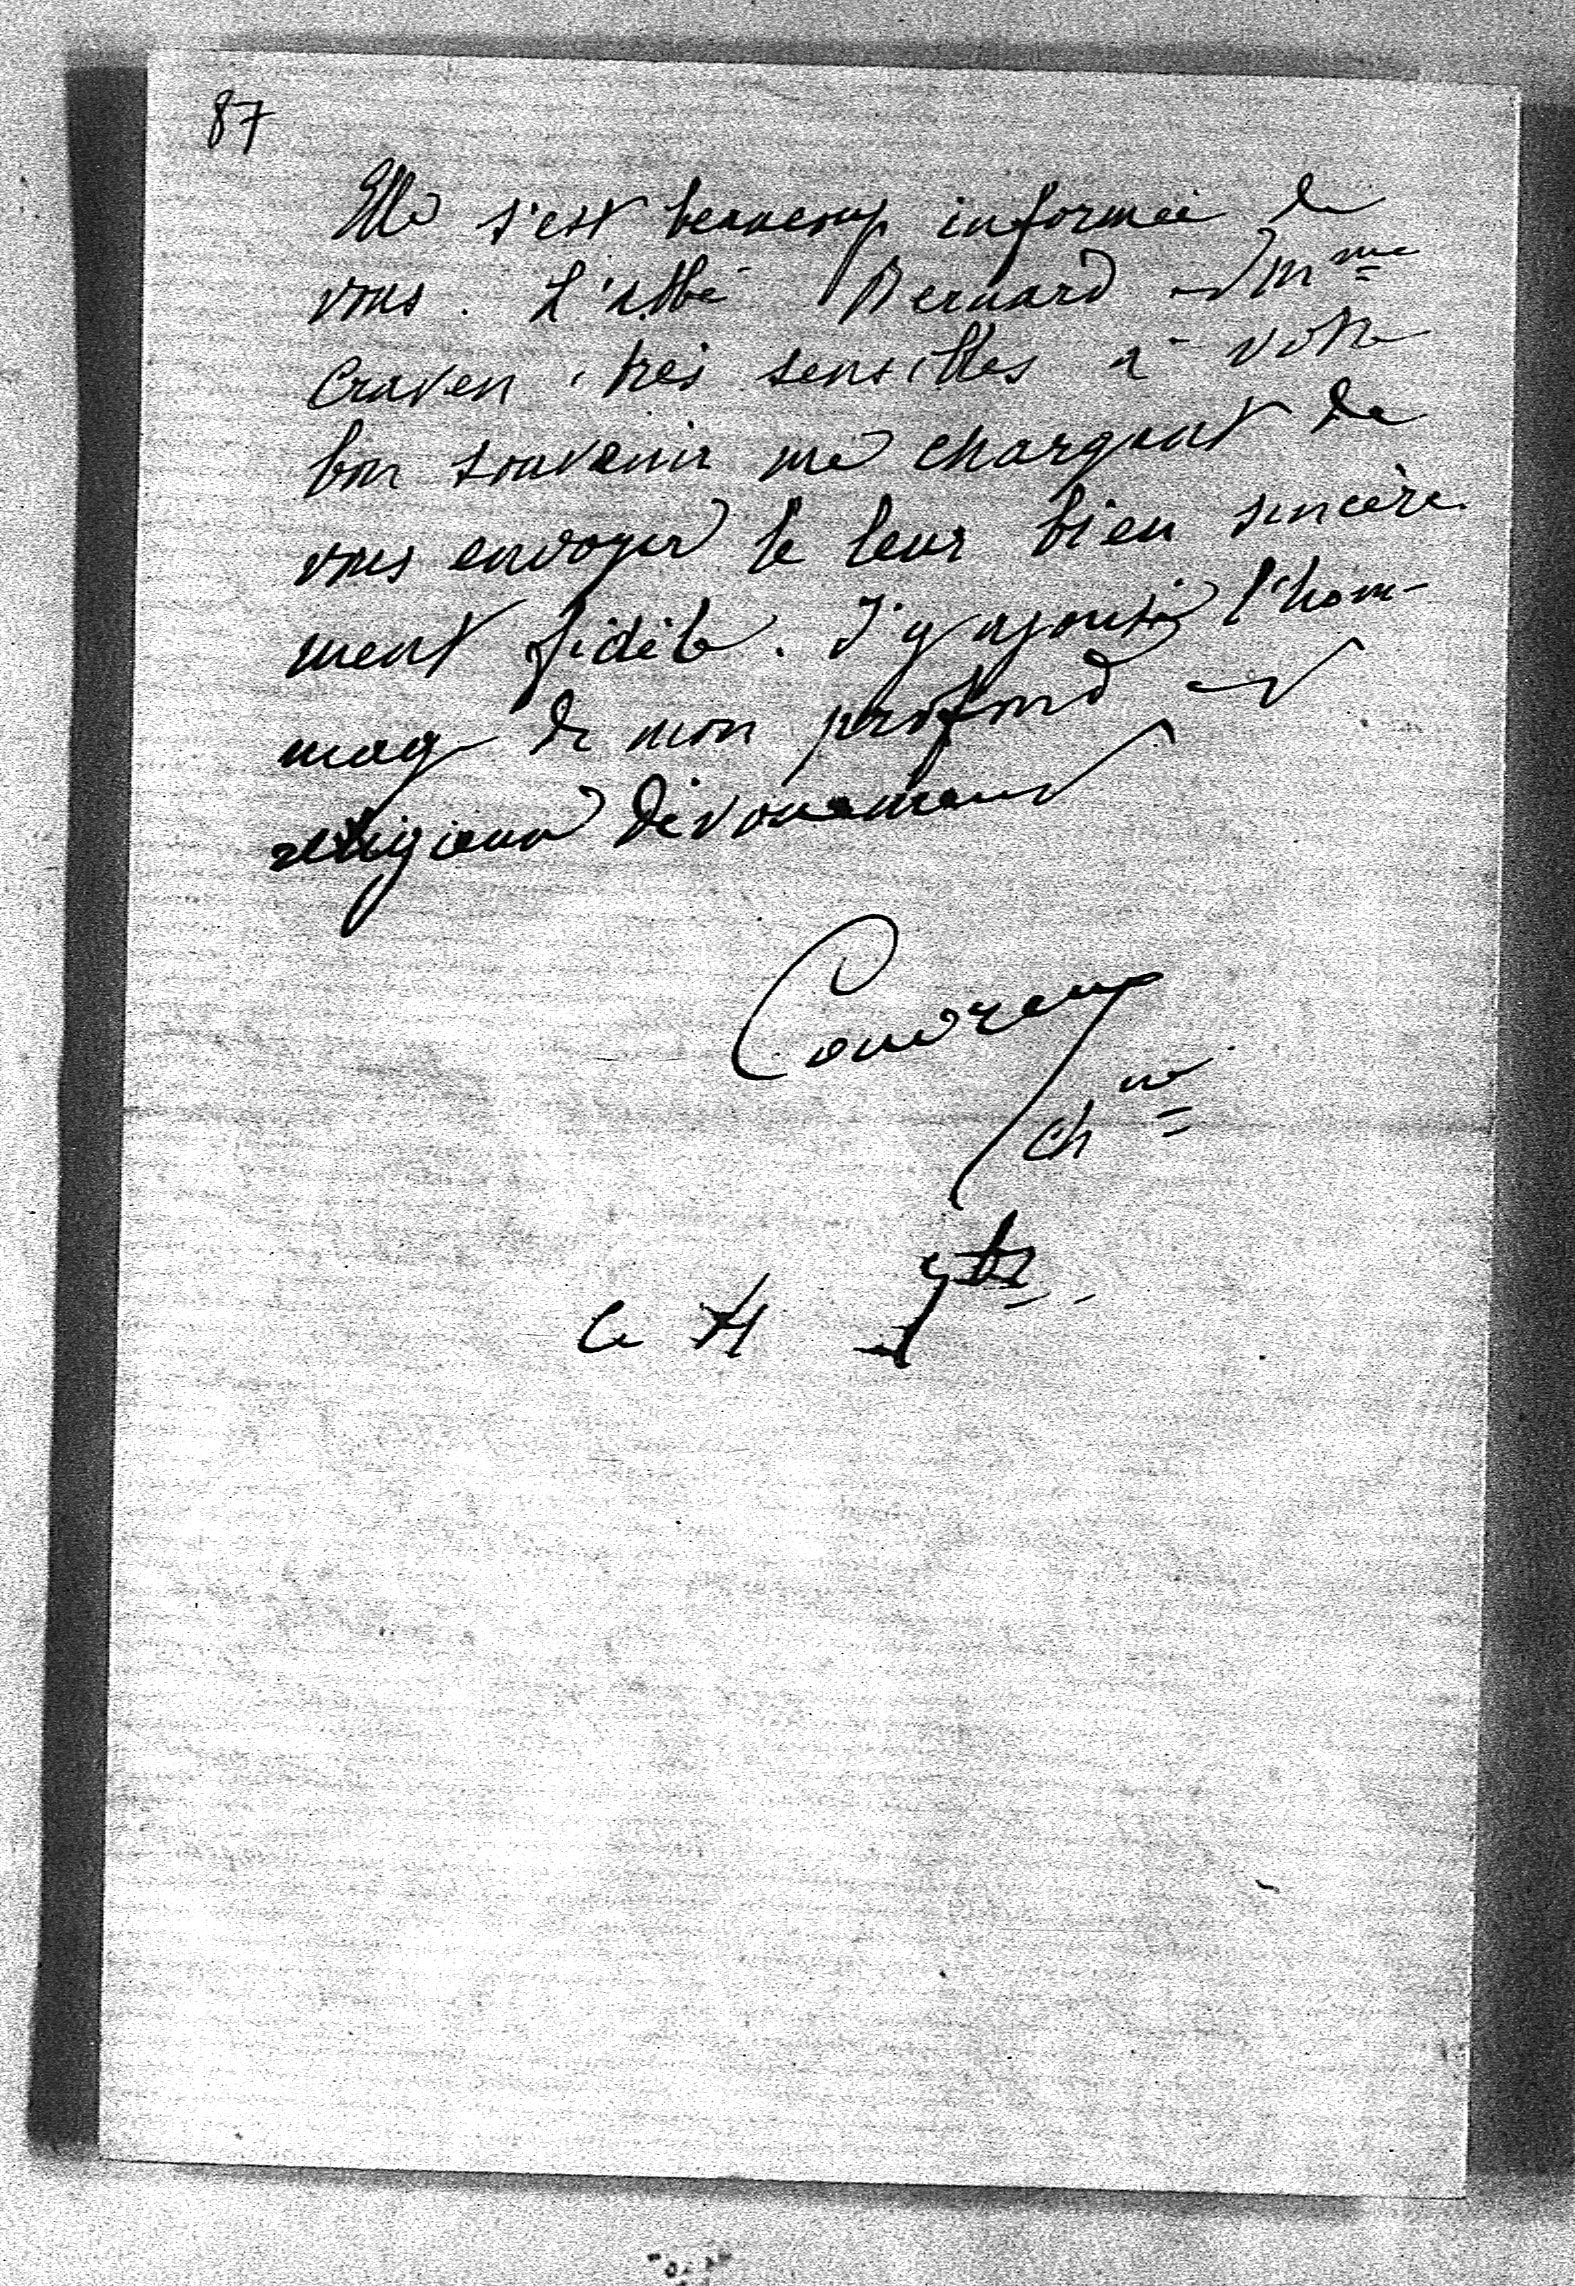 87
Elle s'est beaucoup informée de
vous. L'abbé Bernard et Mme
Craven, très sensibles à votre
bon souvenir me chargent de
vous envoyer le leur bien sincère
ment fidèle. J'y ajoute l'hom-
mage de mon profond et
religieux dévouement
Couvreux
Chne
Ce